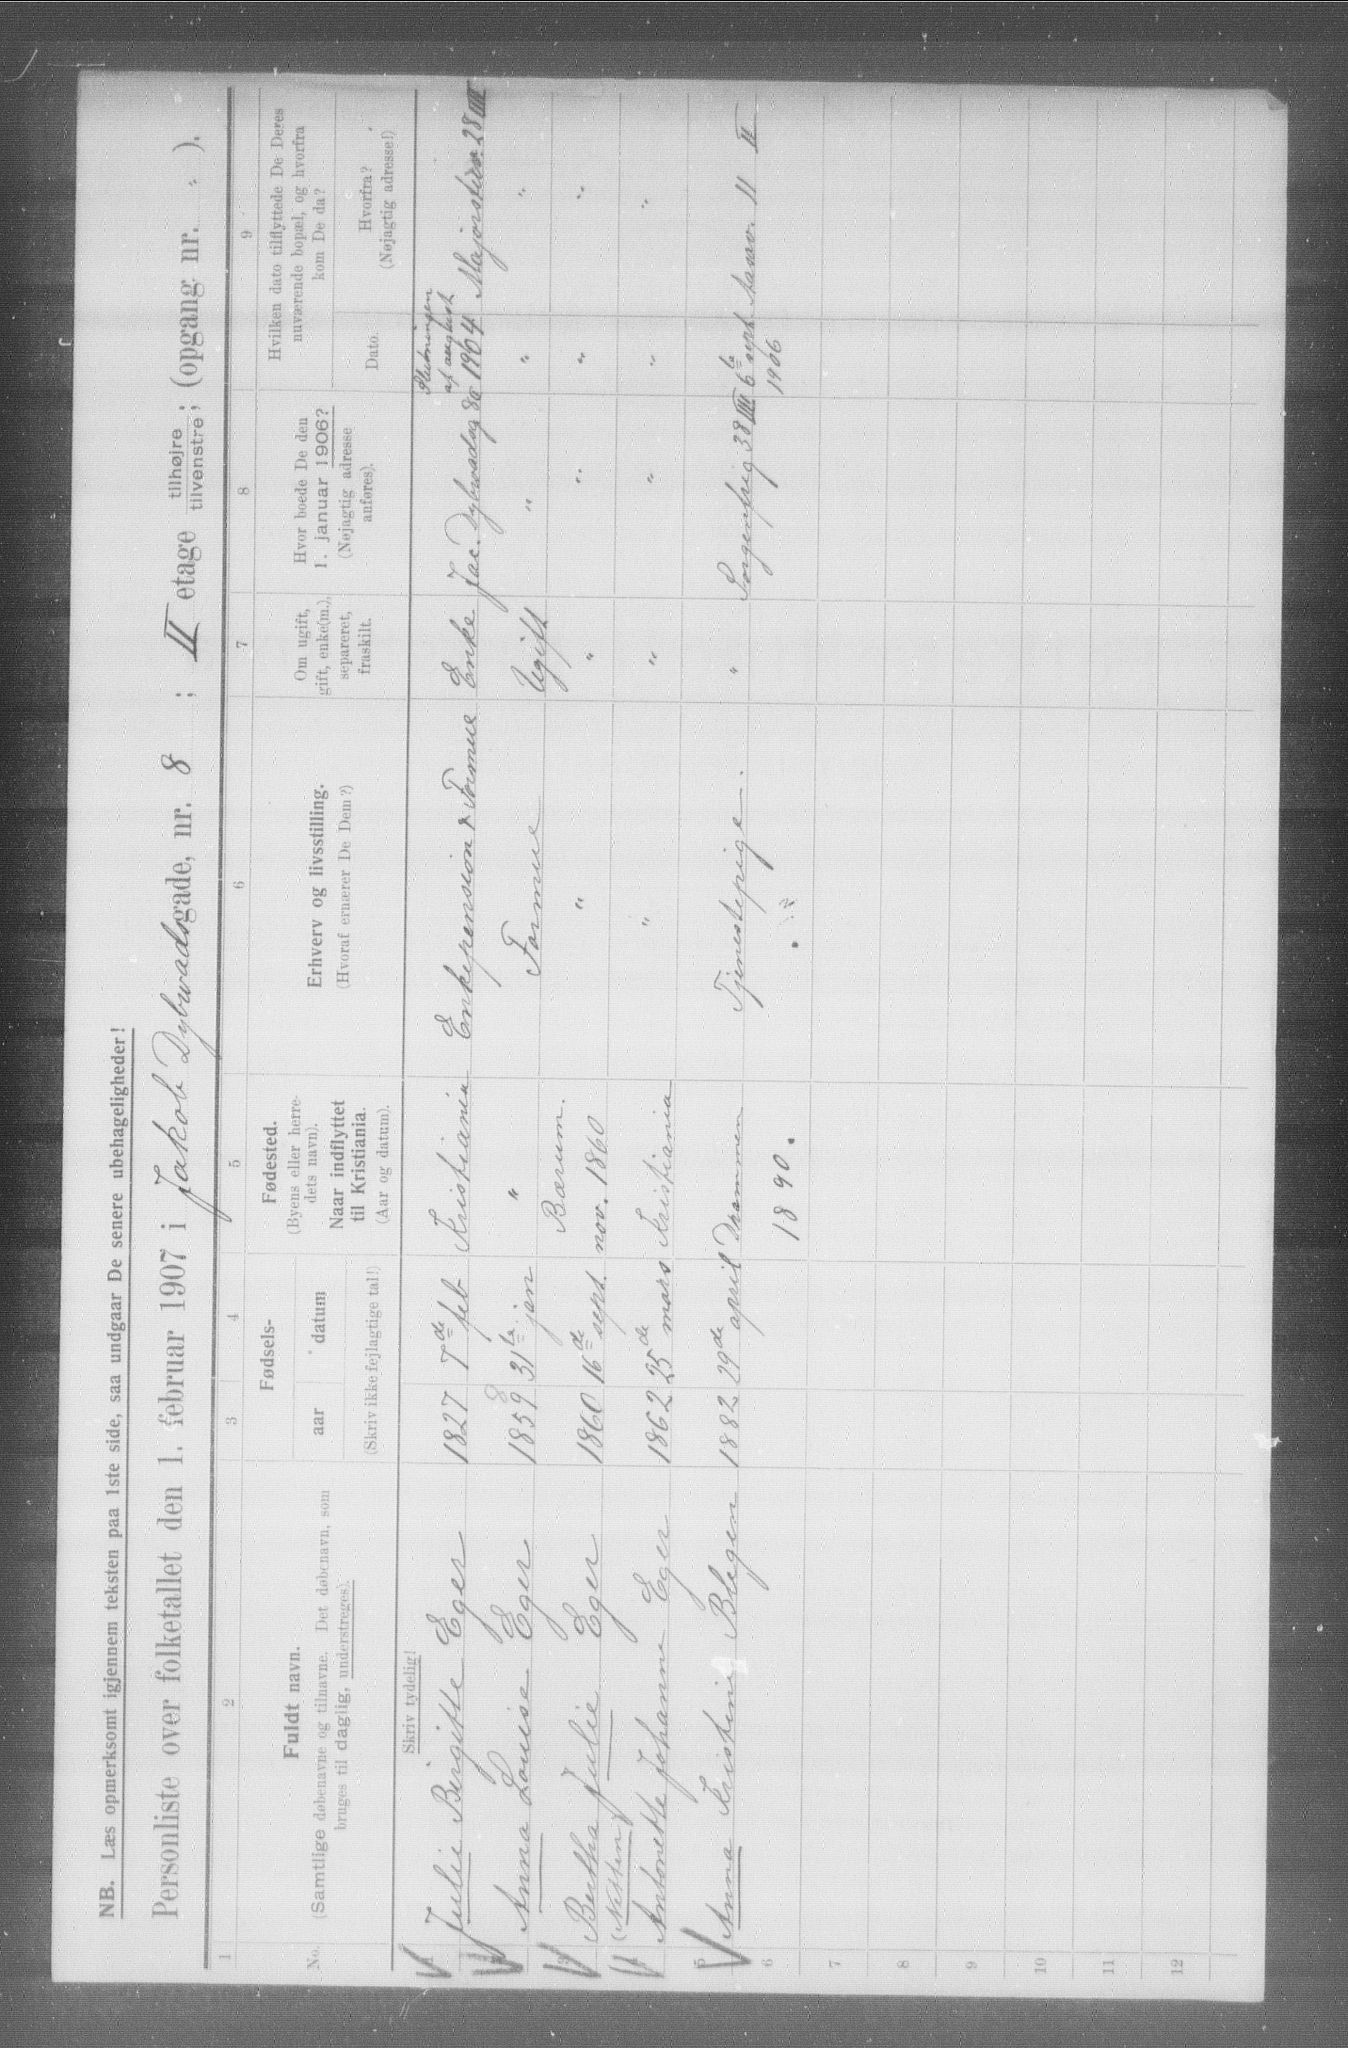 NB. Læs opmerksomt igjennem teksten paa 1ste side, saa undgaar De senere ubehageligheder!
Personliste over folketallet den 1. februar 1907 i Jakob Dybwadsgade, nr. 8 ; II etage tilhøjre/tilvenstre; (opgang nr. „ ).
1 2 3 4 5 6 7 8 9
No.
Fuldt navn.
(Samtlige døbenavne og tilnavne. Det døbenavn, som
bruges til daglig, understreges).
Fødsels-
aar datum
(Skriv ikke fejlagtige tal!)
Fødested.
(Byens eller herre-
dets navn).
Naar indflyttet
til Kristiania.
(Aar og datum).
Erhverv og livsstilling.
(Hvoraf ernærer De Dem?)
Om ugift,
gift, enke(m.),
separeret,
fraskilt.
Hvor boede De den
1. januar 1906?
(Nøjagtig adresse
anføres).
Hvilken dato tilflyttede De Deres
nuværende bopæl, og hvorfra
kom De da?
Dato.
Hvorfra?
(Nøjagtig adresse!)
Skriv tydelig!
1 Julie Birgitte Eger 1827 7de feb Kristiania Enkepension & Formue Enke Jac. Dybwadsg 8a Slutningen af august 1904 Majorstuv. 28 III
2 Anna Louise Eger 1859 31te jan „ Formue Ugift „ „ „
3 Bertha Julie Eger 1860 16de sept. Bærum. nov. 1860 „ „ „ „ „
4 (Netten) Antonette Johanne Eger 1862 25de mars Kristiania „ „ „ „ „
5 Anna Kristine Blegen 1882 29de april Drammen 1890. Tjenestepige. „ Sorgenfrig 38 III 6te sept. 1906 11 II
6
7
8
9
10
11
12